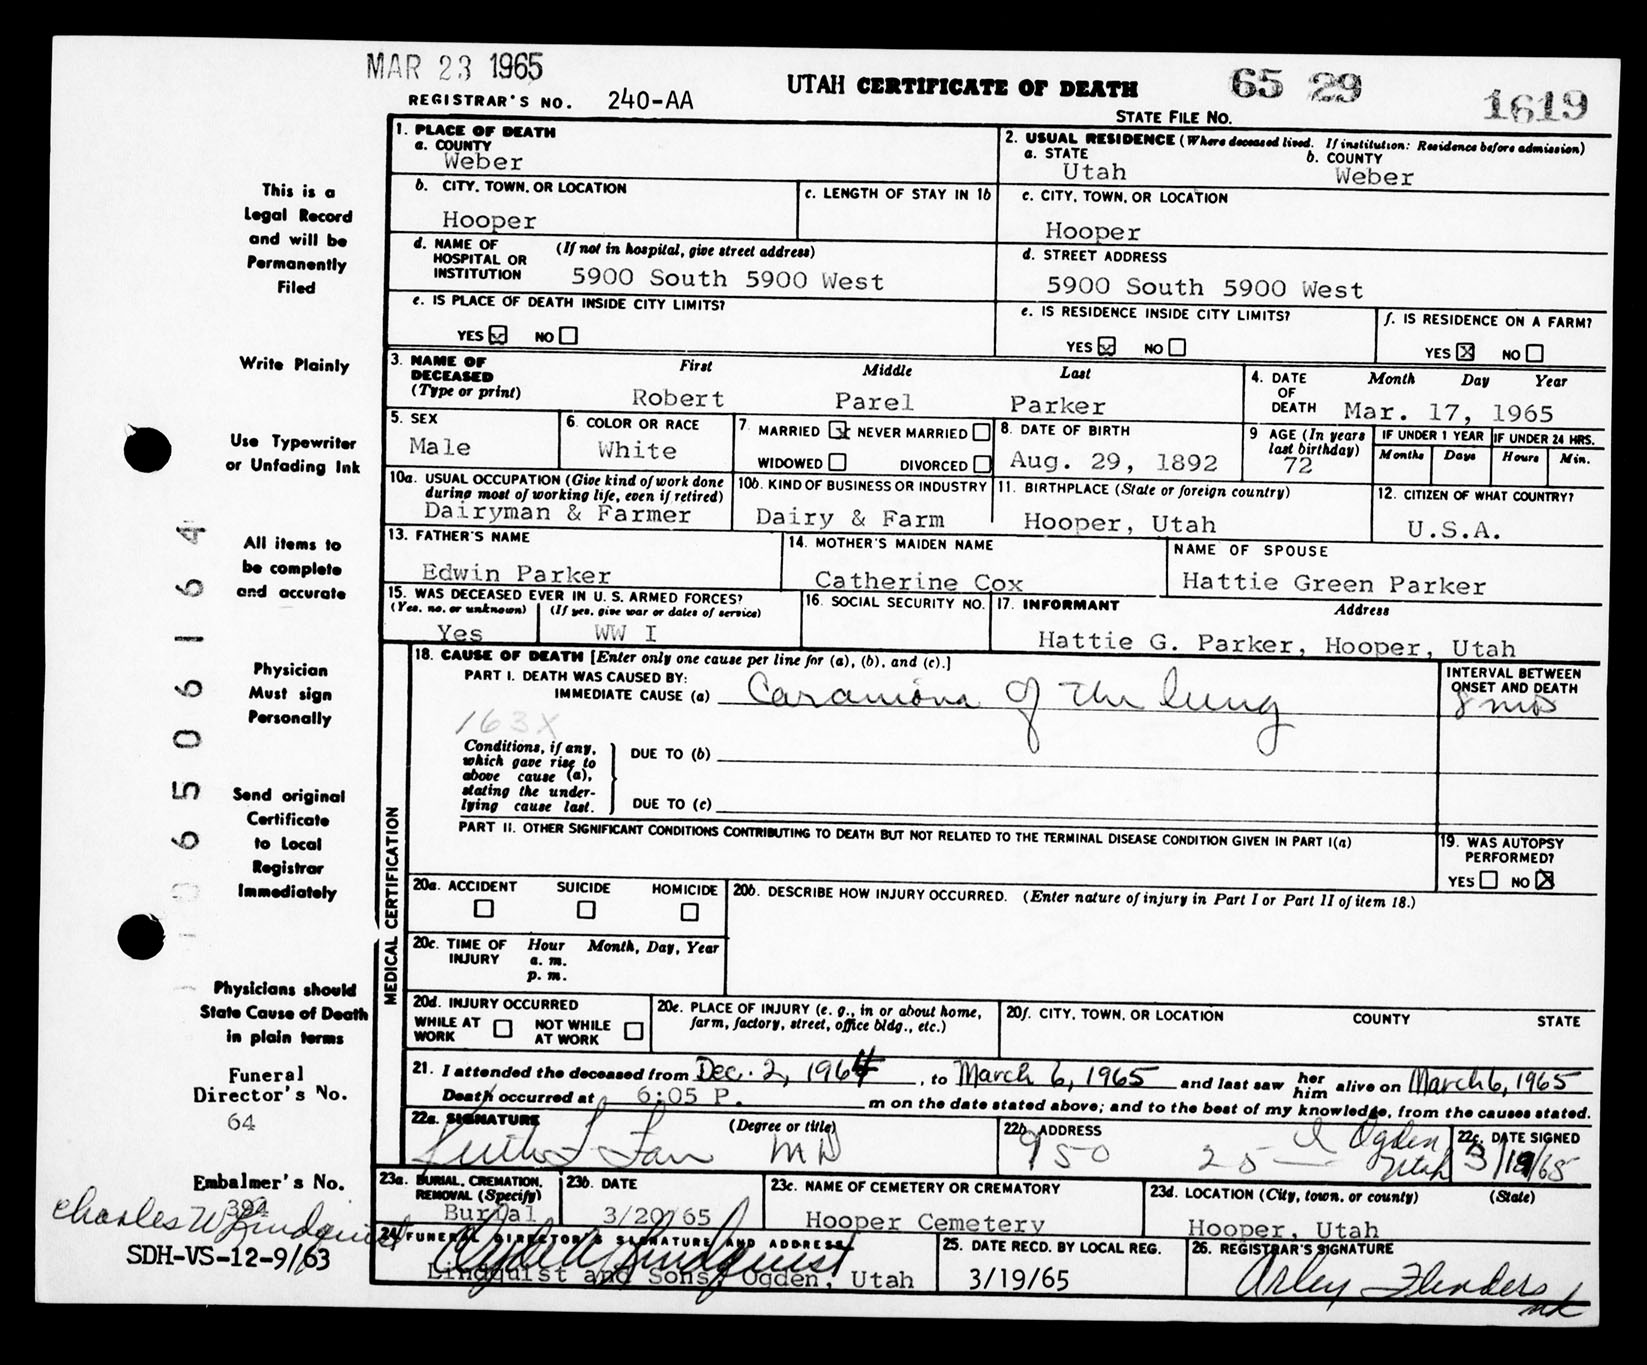 MAR 23 1965
REGISTRAR'S NO. 240-AA
UTAH CERTIFICATE OF DEATH
65 29
STATE FILE NO. 1619
This is a
Legal Record
and will be
Permanently
Filed
Write Plainly
Use Typewriter
or Unfading Ink
All items to
be complete
and accurate
Physician
Must sign
Personally
Send original
Certificate
to Local
Registrar
Immediately
Physicians should
State Cause of Death
in plain terms
Funeral
Director's No.
64
Embalmer's No.
394
Charles W Lindquist
SDH-VS-12-9/63
6506164
1. PLACE OF DEATH
a. COUNTY
Weber
2. USUAL RESIDENCE (Where deceased lived. If institution: Residence before admission)
a. STATE b. COUNTY
Utah Weber
b. CITY, TOWN, OR LOCATION
Hooper
c. LENGTH OF STAY IN 1b
c. CITY, TOWN, OR LOCATION
Hooper
d. NAME OF HOSPITAL OR INSTITUTION (If not in hospital, give street address)
5900 South 5900 West
d. STREET ADDRESS
5900 South 5900 West
e. IS PLACE OF DEATH INSIDE CITY LIMITS?
YES NO
e. IS RESIDENCE INSIDE CITY LIMITS?
YES NO
f. IS RESIDENCE ON A FARM?
YES X NO
3. NAME OF DECEASED (Type or print)
First Middle Last
Robert Parel Parker
4. DATE OF DEATH Month Day Year
Mar. 17, 1965
5. SEX
Male
6. COLOR OR RACE
White
7. MARRIED X NEVER MARRIED
WIDOWED DIVORCED
8. DATE OF BIRTH
Aug. 29, 1892
9 AGE (In years last birthday)
72
IF UNDER 1 YEAR IF UNDER 24 HRS.
Months Days Hours Min.
10a. USUAL OCCUPATION (Give kind of work done during most of working life, even if retired)
Dairyman & Farmer
10b. KIND OF BUSINESS OR INDUSTRY
Dairy & Farm
11. BIRTHPLACE (State or foreign country)
Hooper, Utah
12. CITIZEN OF WHAT COUNTRY?
U.S.A.
13. FATHER'S NAME
Edwin Parker
14. MOTHER'S MAIDEN NAME
Catherine Cox
NAME OF SPOUSE
Hattie Green Parker
15. WAS DECEASED EVER IN U. S. ARMED FORCES?
(Yes, no, or unknown) (If yes, give war or dates of service)
Yes WW I
16. SOCIAL SECURITY NO.
17. INFORMANT Address
Hattie G. Parker, Hooper, Utah
MEDICAL CERTIFICATION
18. CAUSE OF DEATH [Enter only one cause per line for (a), (b), and (c).]
PART I. DEATH WAS CAUSED BY:
IMMEDIATE CAUSE (a) Caranioma of the lung
INTERVAL BETWEEN ONSET AND DEATH
8 mos
163X
Conditions, if any, which gave rise to above cause (a), stating the underlying cause last.
DUE TO (b)
DUE TO (c)
PART II. OTHER SIGNIFICANT CONDITIONS CONTRIBUTING TO DEATH BUT NOT RELATED TO THE TERMINAL DISEASE CONDITION GIVEN IN PART I(a)
19. WAS AUTOPSY PERFORMED?
YES NO X
20a. ACCIDENT SUICIDE HOMICIDE
20b. DESCRIBE HOW INJURY OCCURRED. (Enter nature of injury in Part I or Part II of item 18.)
20c. TIME OF INJURY Hour Month, Day, Year
a. m.
p. m.
20d. INJURY OCCURRED
WHILE AT WORK NOT WHILE AT WORK
20e. PLACE OF INJURY (e. g., in or about home, farm, factory, street, office bldg., etc.)
20f. CITY, TOWN, OR LOCATION COUNTY STATE
21. I attended the deceased from Dec. 2, 1964, to March 6, 1965 and last saw her him alive on March 6, 1965
Death occurred at 6:05 P. m on the date stated above; and to the best of my knowledge, from the causes stated.
22a. SIGNATURE (Degree or title)
MD
22b. ADDRESS
950 25 Ogden Utah
22c. DATE SIGNED
3/19/65
23a. BURIAL, CREMATION, REMOVAL (Specify)
Burial
23b. DATE
3/20/65
23c. NAME OF CEMETERY OR CREMATORY
Hooper Cemetery
23d. LOCATION (City, town, or county) (State)
Hooper, Utah
24. FUNERAL DIRECTOR'S SIGNATURE AND ADDRESS
Lindquist and Sons, Ogden, Utah
25. DATE RECD. BY LOCAL REG.
3/19/65
26. REGISTRAR'S SIGNATURE
Arley Flinders